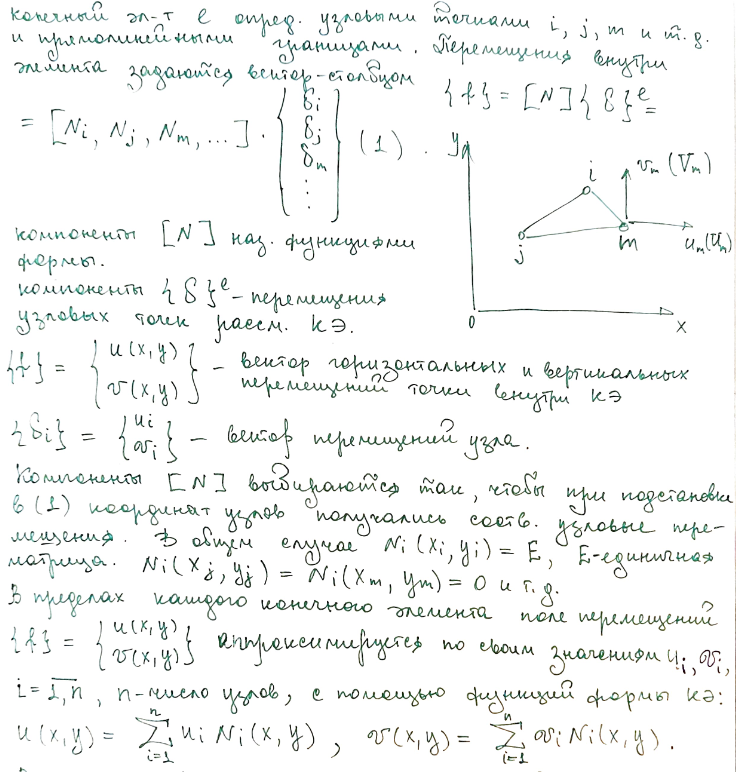 конечный эл-т е опред. узловыми точками i, j, m и т.д.
и прямолинейными границами. Перемещения внутри
элемента задаются вектор-столбцом {f} = [N]{δ}ᵉ =
= [Nᵢ, Nⱼ, Nₘ, ...] · {δᵢ δⱼ δₘ ⋮} (1).
y
i
j
m
vₘ (Vₘ)
uₘ (Uₘ)
0
x
компоненты [N] наз. функциями
формы.
компоненты {δ}ᵉ - перемещения
узловых точек рассм. КЭ.
{f} = {u(x,y) v(x,y)} - вектор горизонтальных и вертикальных
перемещений точки внутри КЭ
{δᵢ} = {uᵢ vᵢ} - вектор перемещений узла.
Компоненты [N] выбираются так, чтобы при подстановке
в (1) координат узлов получались соотв. узловые пере-
мещения. В общем случае Nᵢ(xᵢ, yᵢ) = E, E-единичная
матрица. Nᵢ(xⱼ, yⱼ) = Nᵢ(xₘ, yₘ) = 0 и т.д.
В пределах каждого конечного элемента поле перемещений
{f} = {u(x,y) v(x,y)} аппроксимируется по своим значениям uᵢ, vᵢ,
i = 1,n, n-число узлов, с помощью функций формы КЭ:
u(x,y) = ∑ⁿᵢ₌₁ uᵢ Nᵢ(x,y), v(x,y) = ∑ⁿᵢ₌₁ vᵢ Nᵢ(x,y).